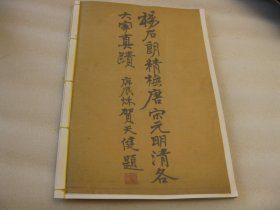 楊石朗精橅唐宋元明清各
大家真蹟 庚辰秌賀天健題